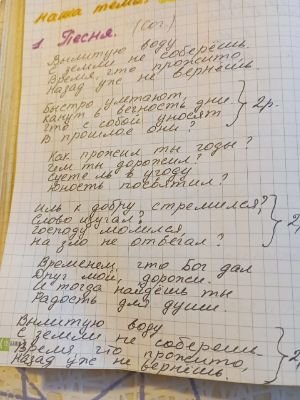 наша тема:
1 Песня. (Сог.)
Вылитую воду
С земли не соберёшь.
Время, что прожито,
Назад уже не вернёшь.
Быстро улетают,
канут в вечность дни.
Что с собой уносят
В прошлое они? 2р.
Как прожил ты годы?
Чем ты дорожил?
Суете ль в угоду
Юность посвятил?
Иль к добру стремился?
Слово изучал?
Господу молился,
на зло не отвечал? 2
Временем, что Бог дал
Друг мой, дорожи.
И тогда найдёшь ты
Радость для души.
Вылитую воду
С земли не соберёшь.
Время что прожито,
Назад уже не вернёшь. 2